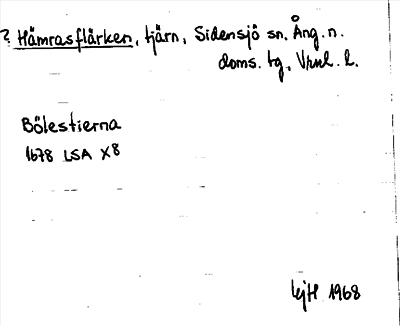 ? Hämrasflärken, tjärn, Sidensjö sn. Ång. n.
doms. tg, Vnul. l.
Bölestierna
1678 LSA X8
LejH 1968